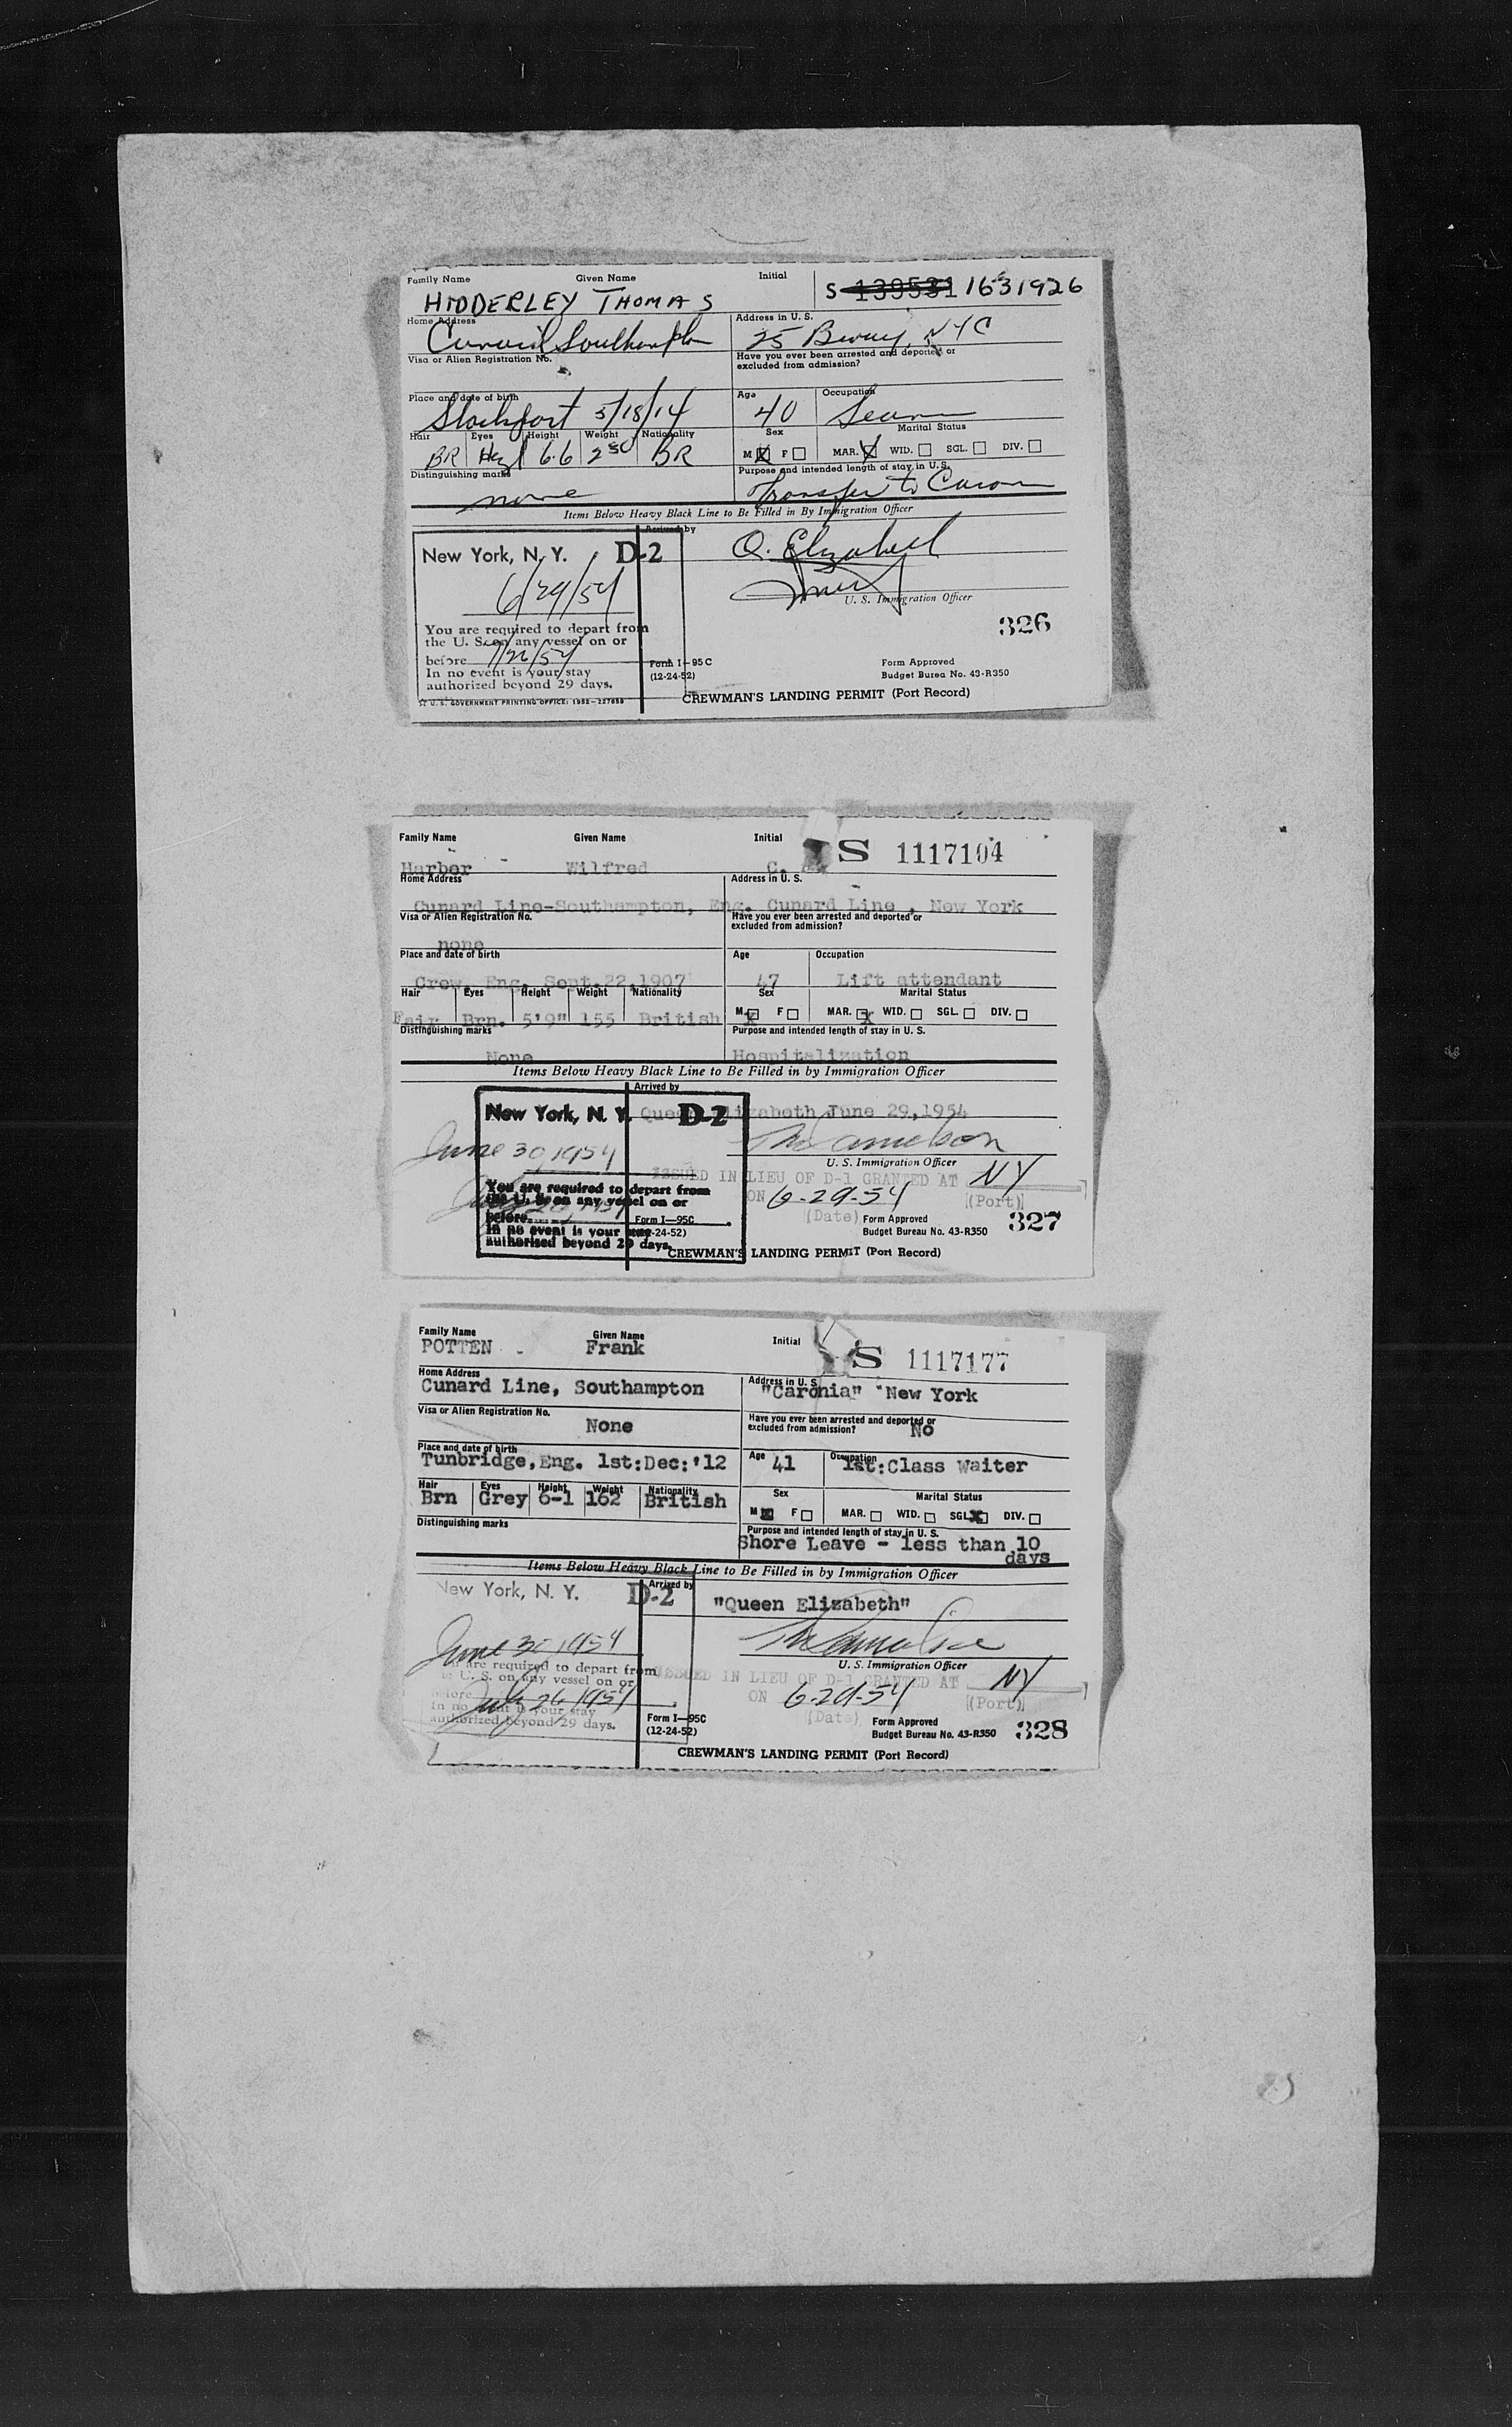 Family Name Given Name Initial
HIDDERLEY THOMAS S 139531 1631926
Home Address Address in U. S.
Cunard Southampton 25 Bway, NYC
Visa or Alien Registration No. Have you ever been arrested and deported or
excluded from admission?
Place and date of birth Age Occupation
Stockport 5/18/14 40 Seaman
Hair Eyes Height Weight Nationality Sex Marital Status
BR Hazl 6.6 250 BR M X F MAR. X WID. SGL. DIV.
Distinguishing marks Purpose and intended length of stay in U. S.
none Transfer to Caron
Items Below Heavy Black Line to Be Filled in By Immigration Officer
Arrived by
New York, N. Y. D-2 Q. Elizabeth
6/29/54
U. S. Immigration Officer
You are required to depart from 326
the U. S. on any vessel on or
before 7/26/54 Form I-95C Form Approved
In no event is your stay (12-24-52) Budget Burea No. 43-R350
authorized beyond 29 days.
CREWMAN'S LANDING PERMIT (Port Record)
☆ U. S. GOVERNMENT PRINTING OFFICE: 1952-227859
Family Name Given Name Initial S 1117104
Harber Wilfred C.
Home Address Address in U. S.
Cunard Line-Southampton, Eng. Cunard Line, New York
Visa or Alien Registration No. Have you ever been arrested and deported or
excluded from admission?
none
Place and date of birth Age Occupation
Crew, Eng. Sept.22,1907 47 Lift attendant
Hair Eyes Height Weight Nationality Sex Marital Status
Fair Brn. 5'9" 155 British M X F MAR. X WID. SGL. DIV.
Distinguishing marks Purpose and intended length of stay in U. S.
None Hospitalization
Items Below Heavy Black Line to Be Filled in by Immigration Officer
Arrived by
New York, N. Y. D-2 Queen Elizabeth June 29,1954
June 30, 1954
U. S. Immigration Officer
ISSUED IN LIEU OF D-1 GRANTED AT NY
You are required to depart from ON 6-29-54 (Port)
the U. S. on any vessel on or (Date)
before Form I-95C Form Approved 327
In no event is your stay (12-24-52) Budget Bureau No. 43-R350
authorised beyond 29 days.
CREWMAN'S LANDING PERMIT (Port Record)
Family Name Given Name Initial S 1117177
POTTEN Frank
Home Address Address in U. S.
Cunard Line, Southampton "Caronia" New York
Visa or Alien Registration No. Have you ever been arrested and deported or
None excluded from admission? No
Place and date of birth Age Occupation
Tunbridge,Eng. 1st:Dec:'12 41 1st:Class Waiter
Hair Eyes Height Weight Nationality Sex Marital Status
Brn Grey 6-1 162 British M X F MAR. WID. SGL. X DIV.
Distinguishing marks Purpose and intended length of stay in U. S.
Shore Leave - less than 10
days
Items Below Heavy Black Line to Be Filled in by Immigration Officer
Arrived by
New York, N. Y. D-2 "Queen Elizabeth"
June 30, 1954
U. S. Immigration Officer
You are required to depart from ISSUED IN LIEU OF D-1 GRANTED AT NY
the U. S. on any vessel on or ON 6-29-54 (Port)
before July 26, 1954 (Date)
In no event is your stay Form I-95C Form Approved 328
authorized beyond 29 days. (12-24-52) Budget Bureau No. 43-R350
CREWMAN'S LANDING PERMIT (Port Record)